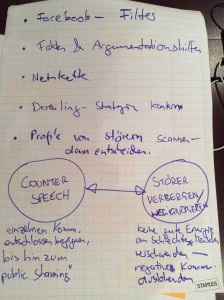 • Facebook – Filter
• Fakten & Argumentationshilfen
• Netikette
• Derailing-Strategien kontern
• Profile von Störern scannen –
dann entscheiden.
COUNTER
SPEECH
STÖRER
VERBERGEN/
WEGIGNORIEREN
einzelnen Komm.
entschlossen begegnen,
bis hin zum
"public Shaming"
keine gute Energie
an Schlechtes
verschwenden –
negative Komm.
ausblenden
STAPLES